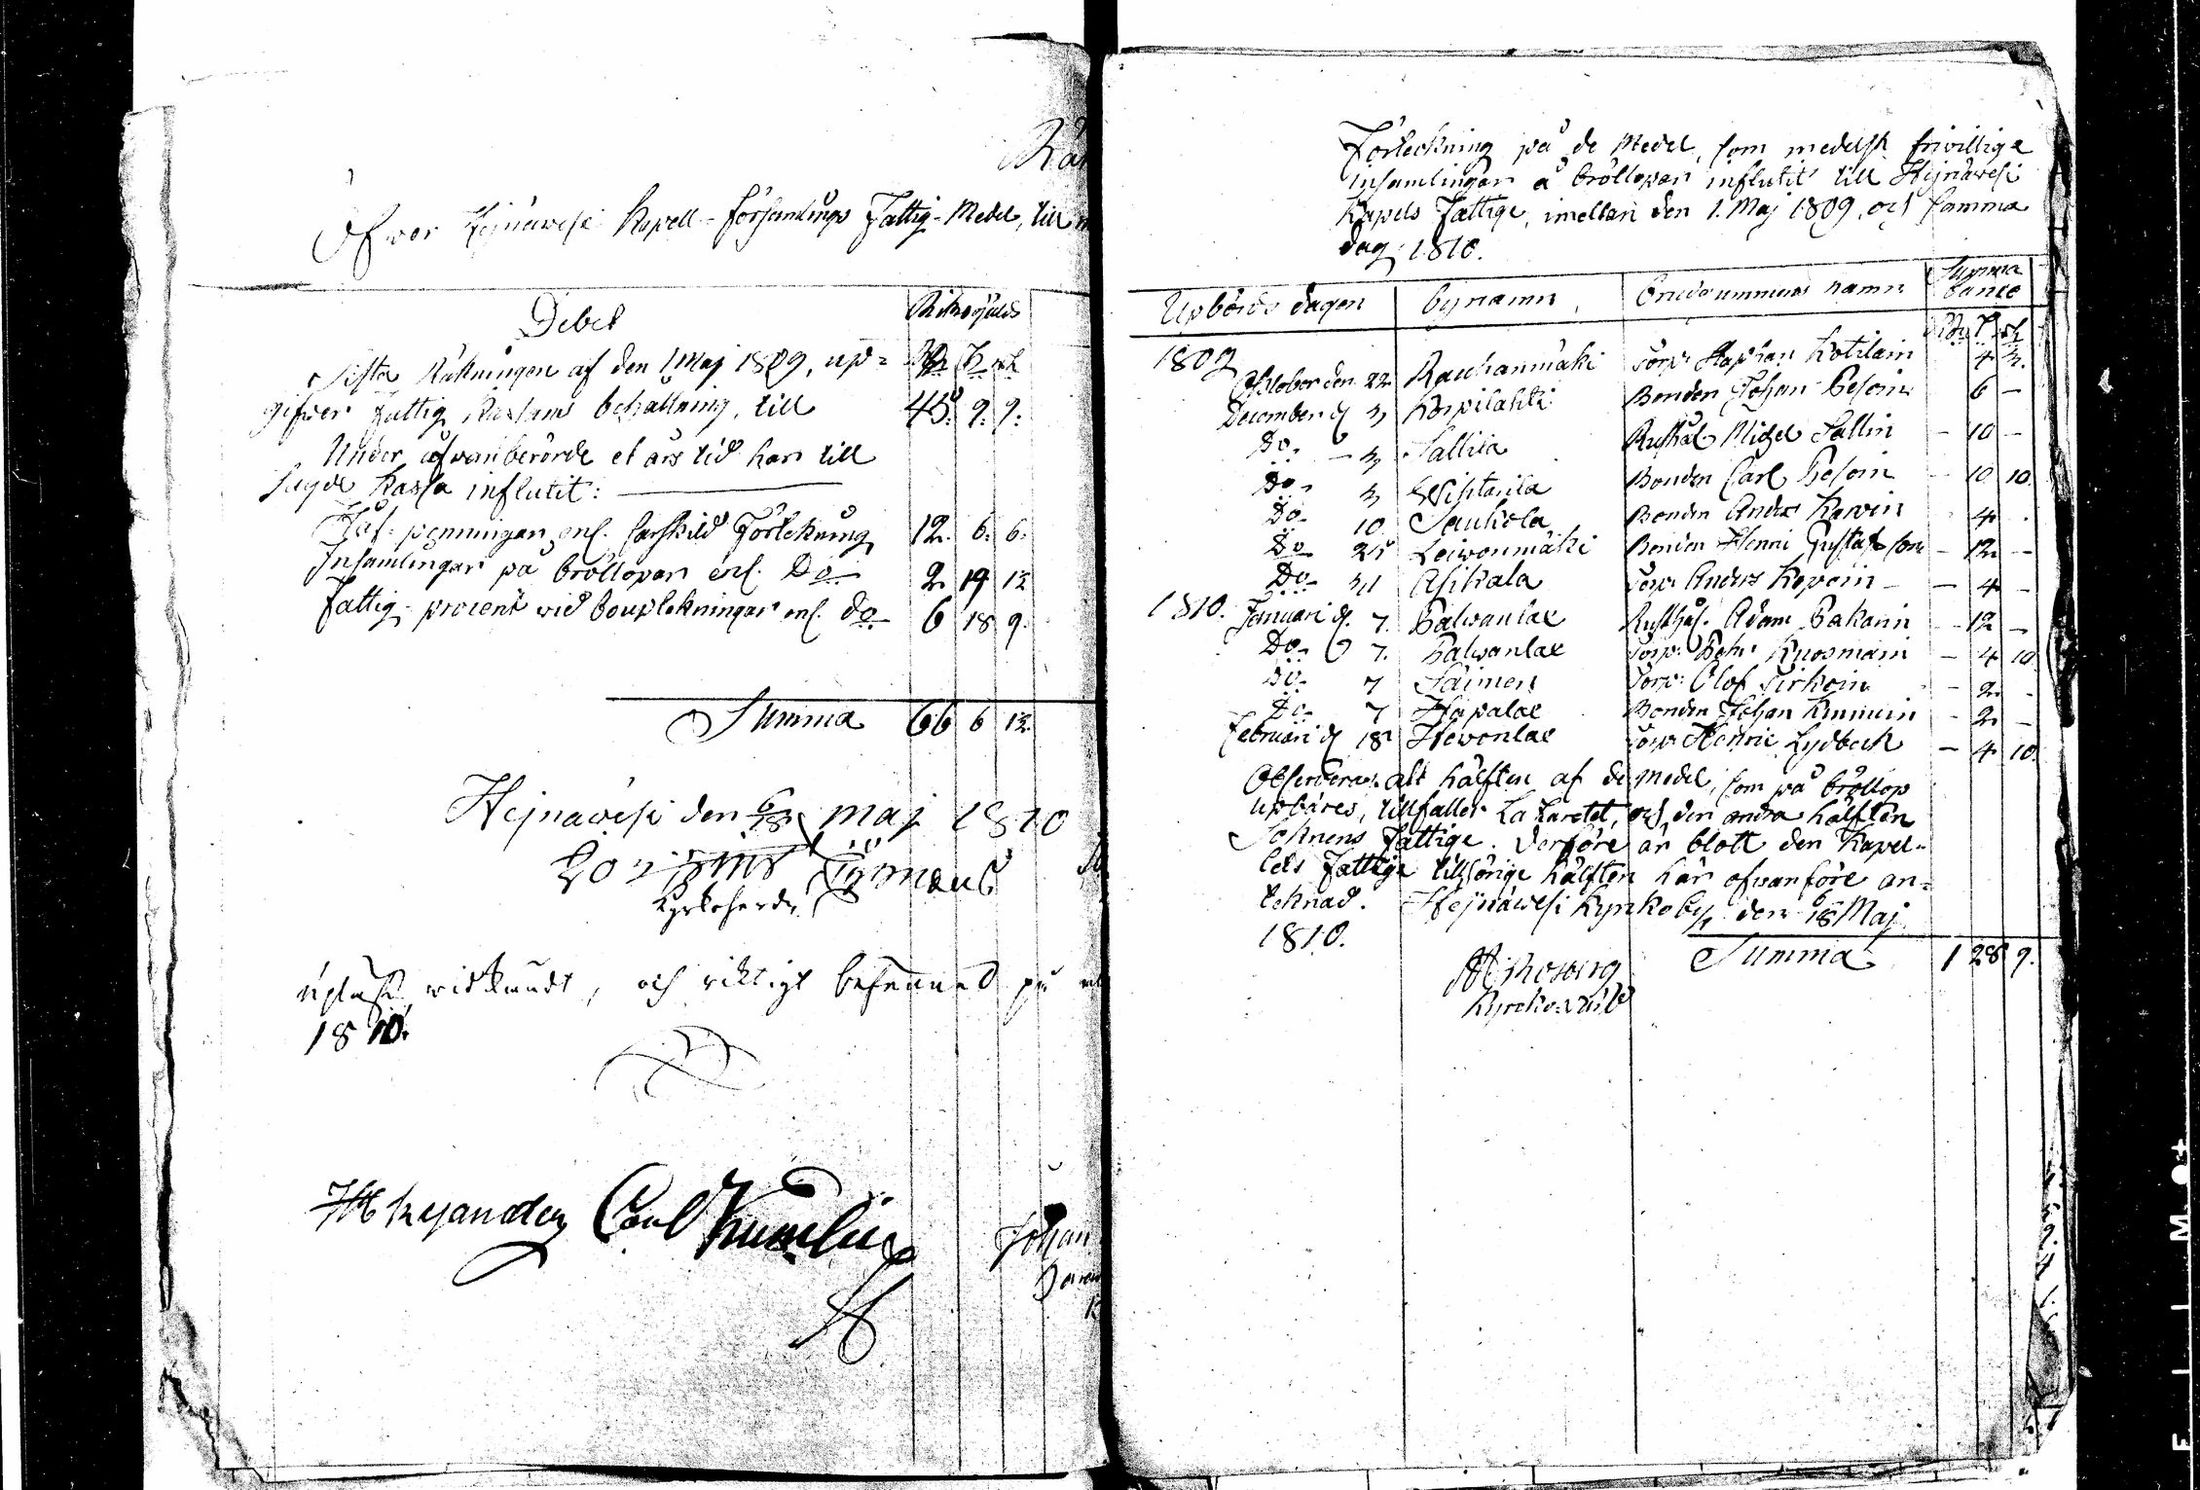 Räk
Öfwer Heinäwesi Kapell-Församlings Fattig-Medel, till
Debet
Riksgälds
Rd ß rst
Sista Räkningen af den 1 Maj 1809, up=
gifwer Fattig Kassans behållning, till 45. 9. 9.
Under ofwanberörde et års tid har till
sagde Kassa influtit:
Håf-penningar enl. särskild Förtekning 12. 6. 6.
Insamlingar på bröllopen enl. Do 2 19
Fattig-procent wid bouptekningar enl. do 6 18 9.
Summa 66 6
Hejnäwesi den maj 1810
Kyrkoherde
Upläst, widkändt, och riktigt befunnet på
1810.
Carl
Johan
Förteckning på de Medel, som medelst frivillige
insamlingar å bröllopen influtit till Hejnäwesi
Kapels Fattige, imellan den 1. Maj 1809, och samma
dag 1810.
Upbörds dagen Bynamn Brudgummens namn Summa banco
Rdr ß rst
1809
October den 22 Rauhanmäki Torp. Staphan Kotilain 4
December d. 3 Karpilahti Bonden Johan Pesoin 6 —
Do — 3 Sallila Rusthål. Michel Sallin — 10 —
Do 3 Wihtarila Bonden Carl Pesoin — 10 10.
Do 10 Saukola Bonden Anders Karvin 4
Do 25 Leiwonmäki Bonden Henric Gustafsson — 12 —
Do 31 Asikala Torp. Anders Kopoin — 4 —
1810. Januari d. 7. Palwanlax Rusthål. Adam Pakarin — 12 —
Do 7. Palwanlax Torp. Petter Kuosmain — 4 10.
Do 7 Saimen Torp. Olof Tirkoin — 2 -
Do 7 Hapalax Bonden Johan Immoin - 2 —
Februari d 18 Hewonlax Torp. Henric Lydbeck — 4 10.
Observeras: att hälften af de medel, som på bröllop
upbäres, tillfaller Lazarettet, och den andra hälften
Soknens Fattige. Derföre är blott den Kapel-
lets Fattige tillhörige hälften här ofwanföre an=
teknad. Hejnäwesi Kyrkoby, den 18 Maj
1810.
Summa 1 28 9.